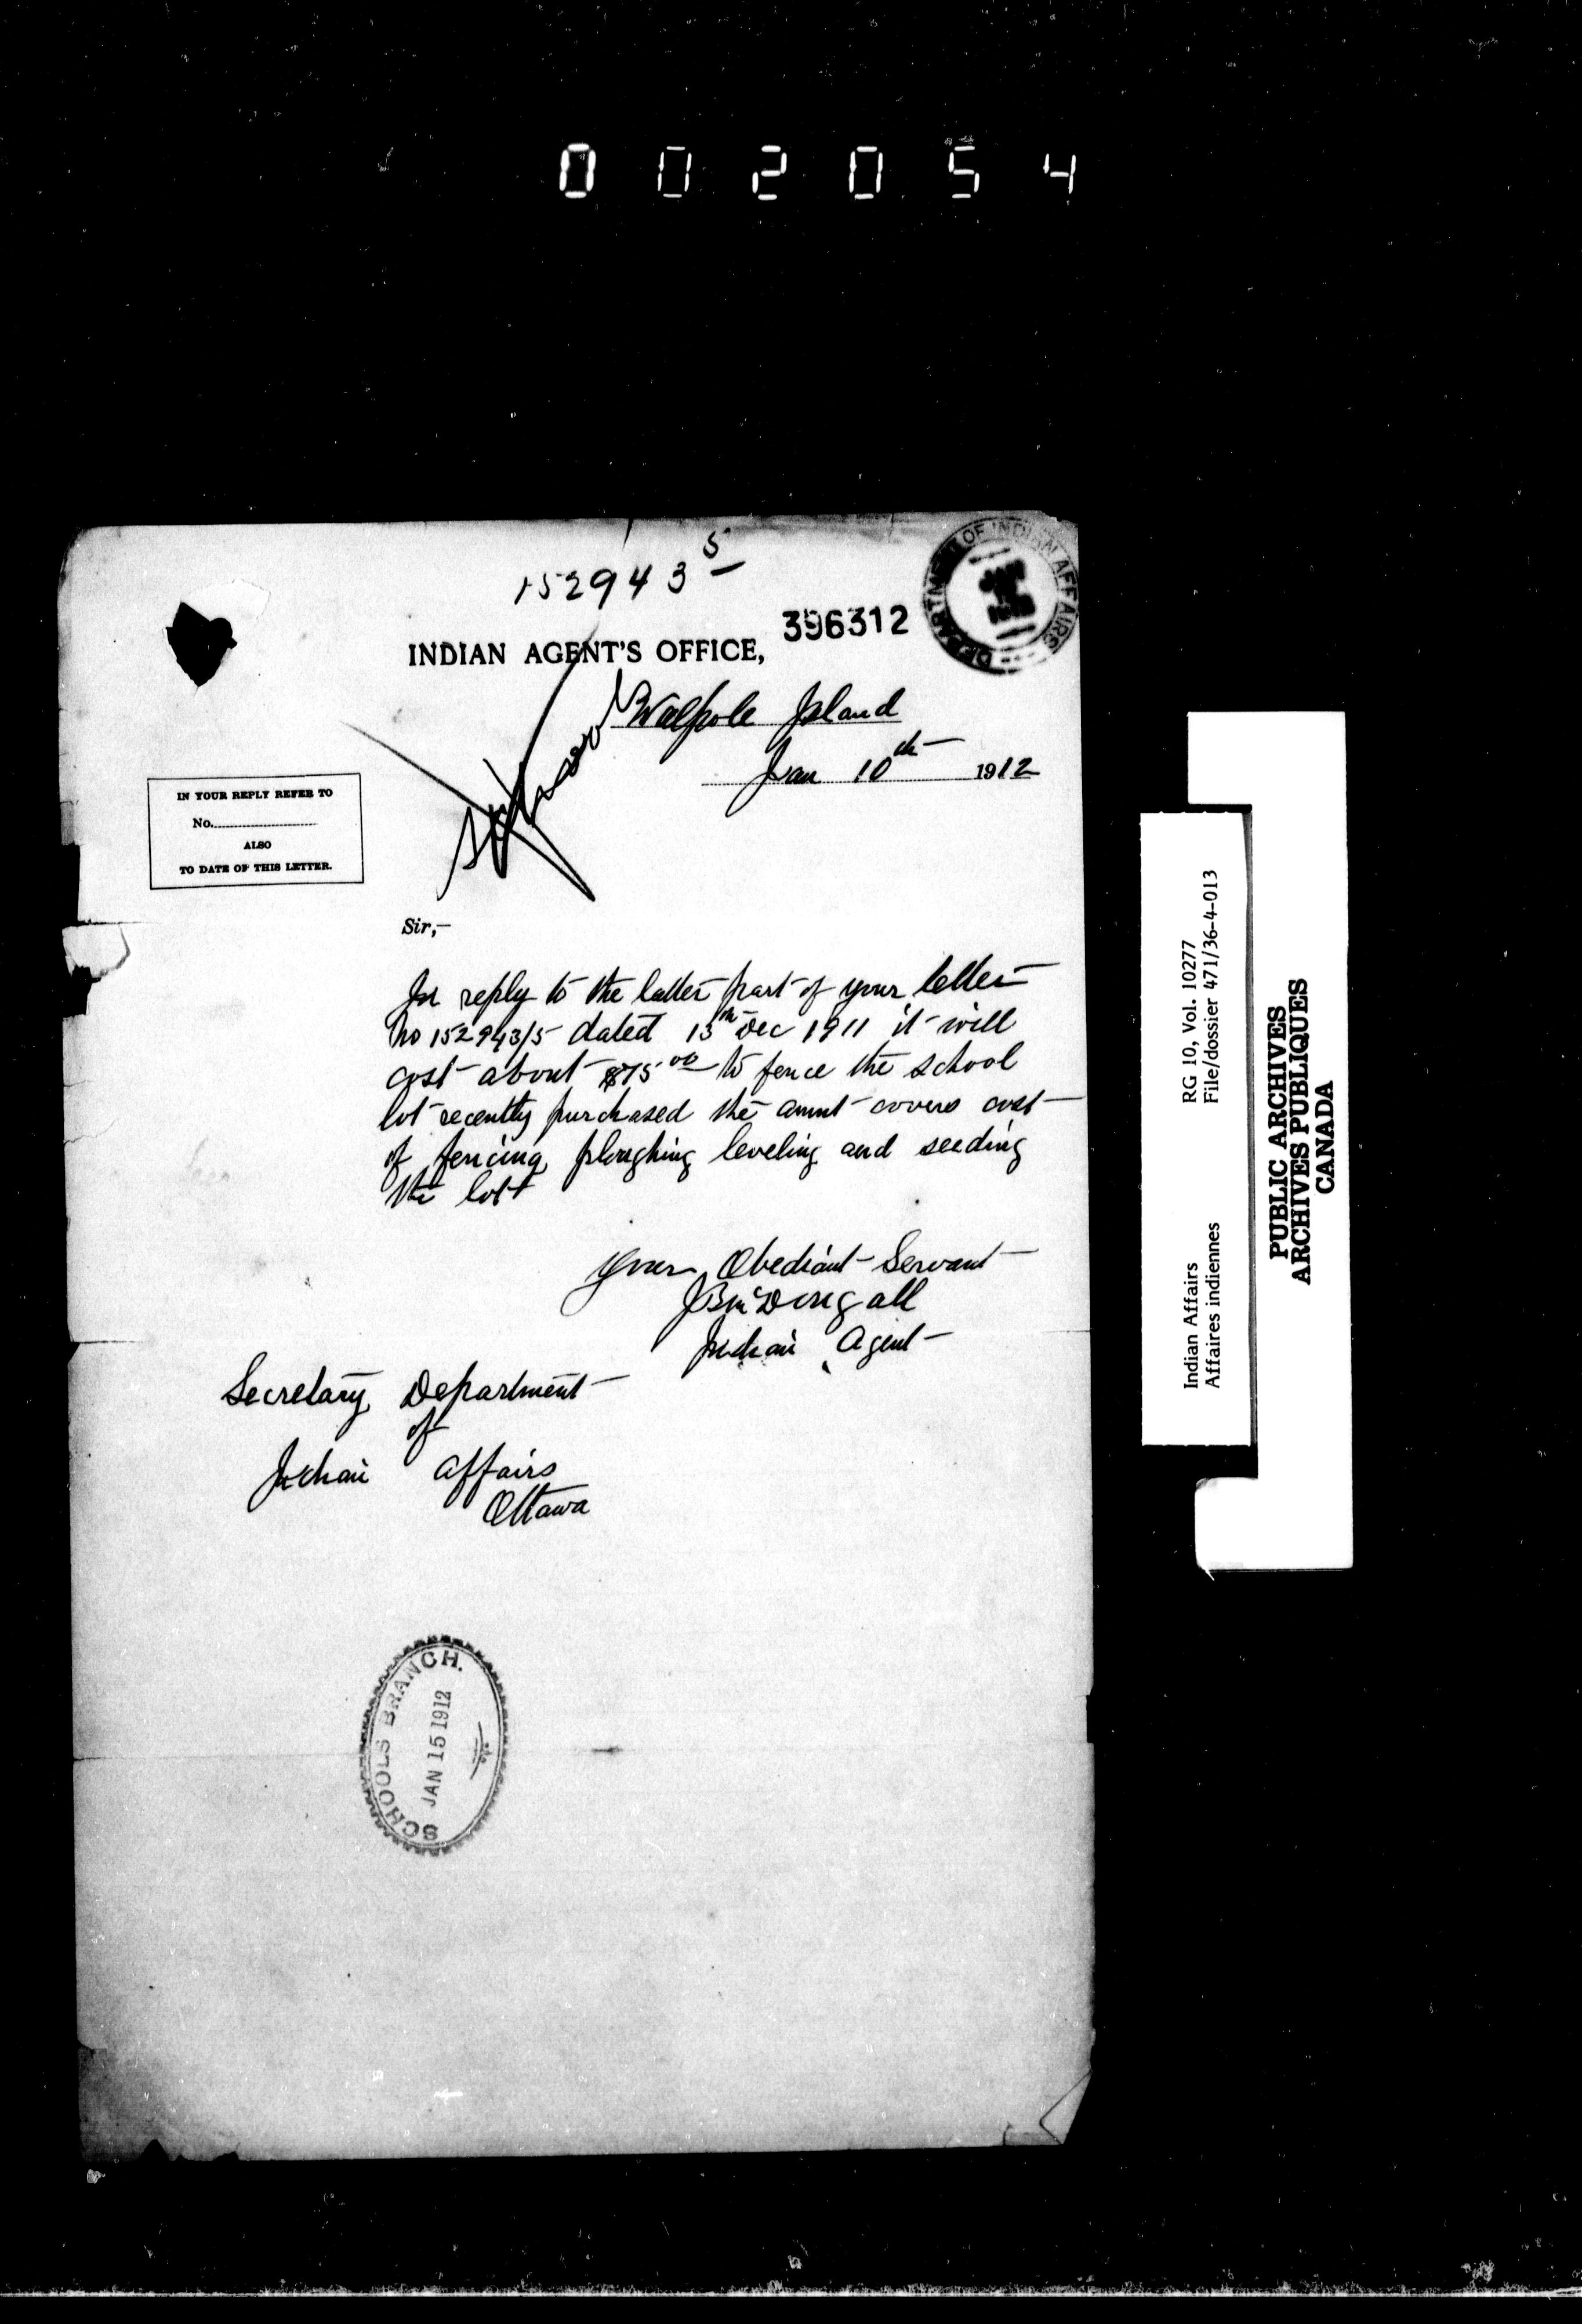 002054
152943 5
396312
DEPARTMENT OF INDIAN AFFAIRS
INDIAN AGENT'S OFFICE,
Walpole Island
Jan 10th 1912
IN YOUR REPLY REFER TO
No.
ALSO
TO DATE OF THIS LETTER.
Sir,—
In reply to the latter part of your letter
No 152943/5 dated 13th Dec 1911 it will
cost about $75.00 to fence the school
lot recently purchased the amnt covers cost
of fencing ploughing leveling and seeding
the lot
Your Obediant Servant
JB McDougall
Indian Agent
Secretary Department
of
Indian Affairs
Ottawa
SCHOOLS BRANCH.
JAN 15 1912
Indian Affairs RG 10, Vol. 10277
Affaires indiennes File/dossier 471/36-4-013
PUBLIC ARCHIVES
ARCHIVES PUBLIQUES
CANADA